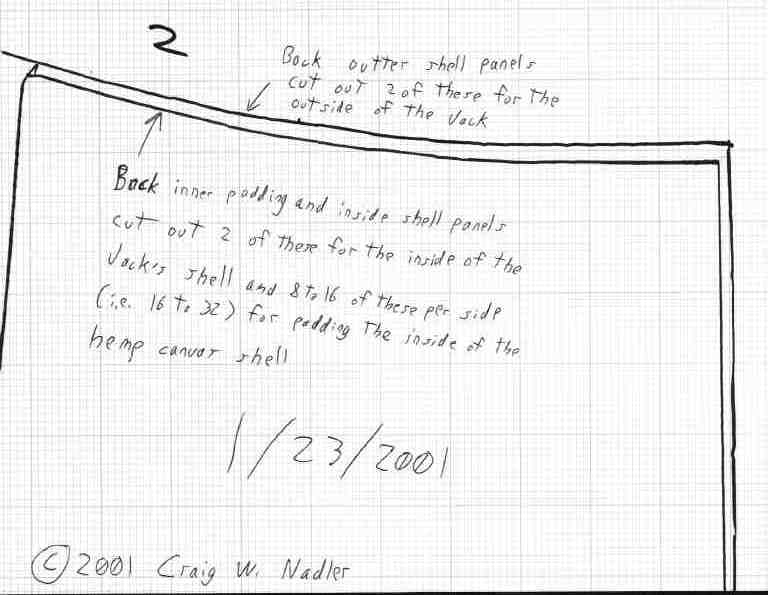 2
Back outter shell panels
cut out 2 of these for the
outside of the Jack
Back inner padding and inside shell panels
cut out 2 of these for the inside of the
Jack's shell and 8 to 16 of these per side
(i.e. 16 to 32) for padding the inside of the
hemp canvas shell
1/23/2001
© 2001 Craig W. Nadler